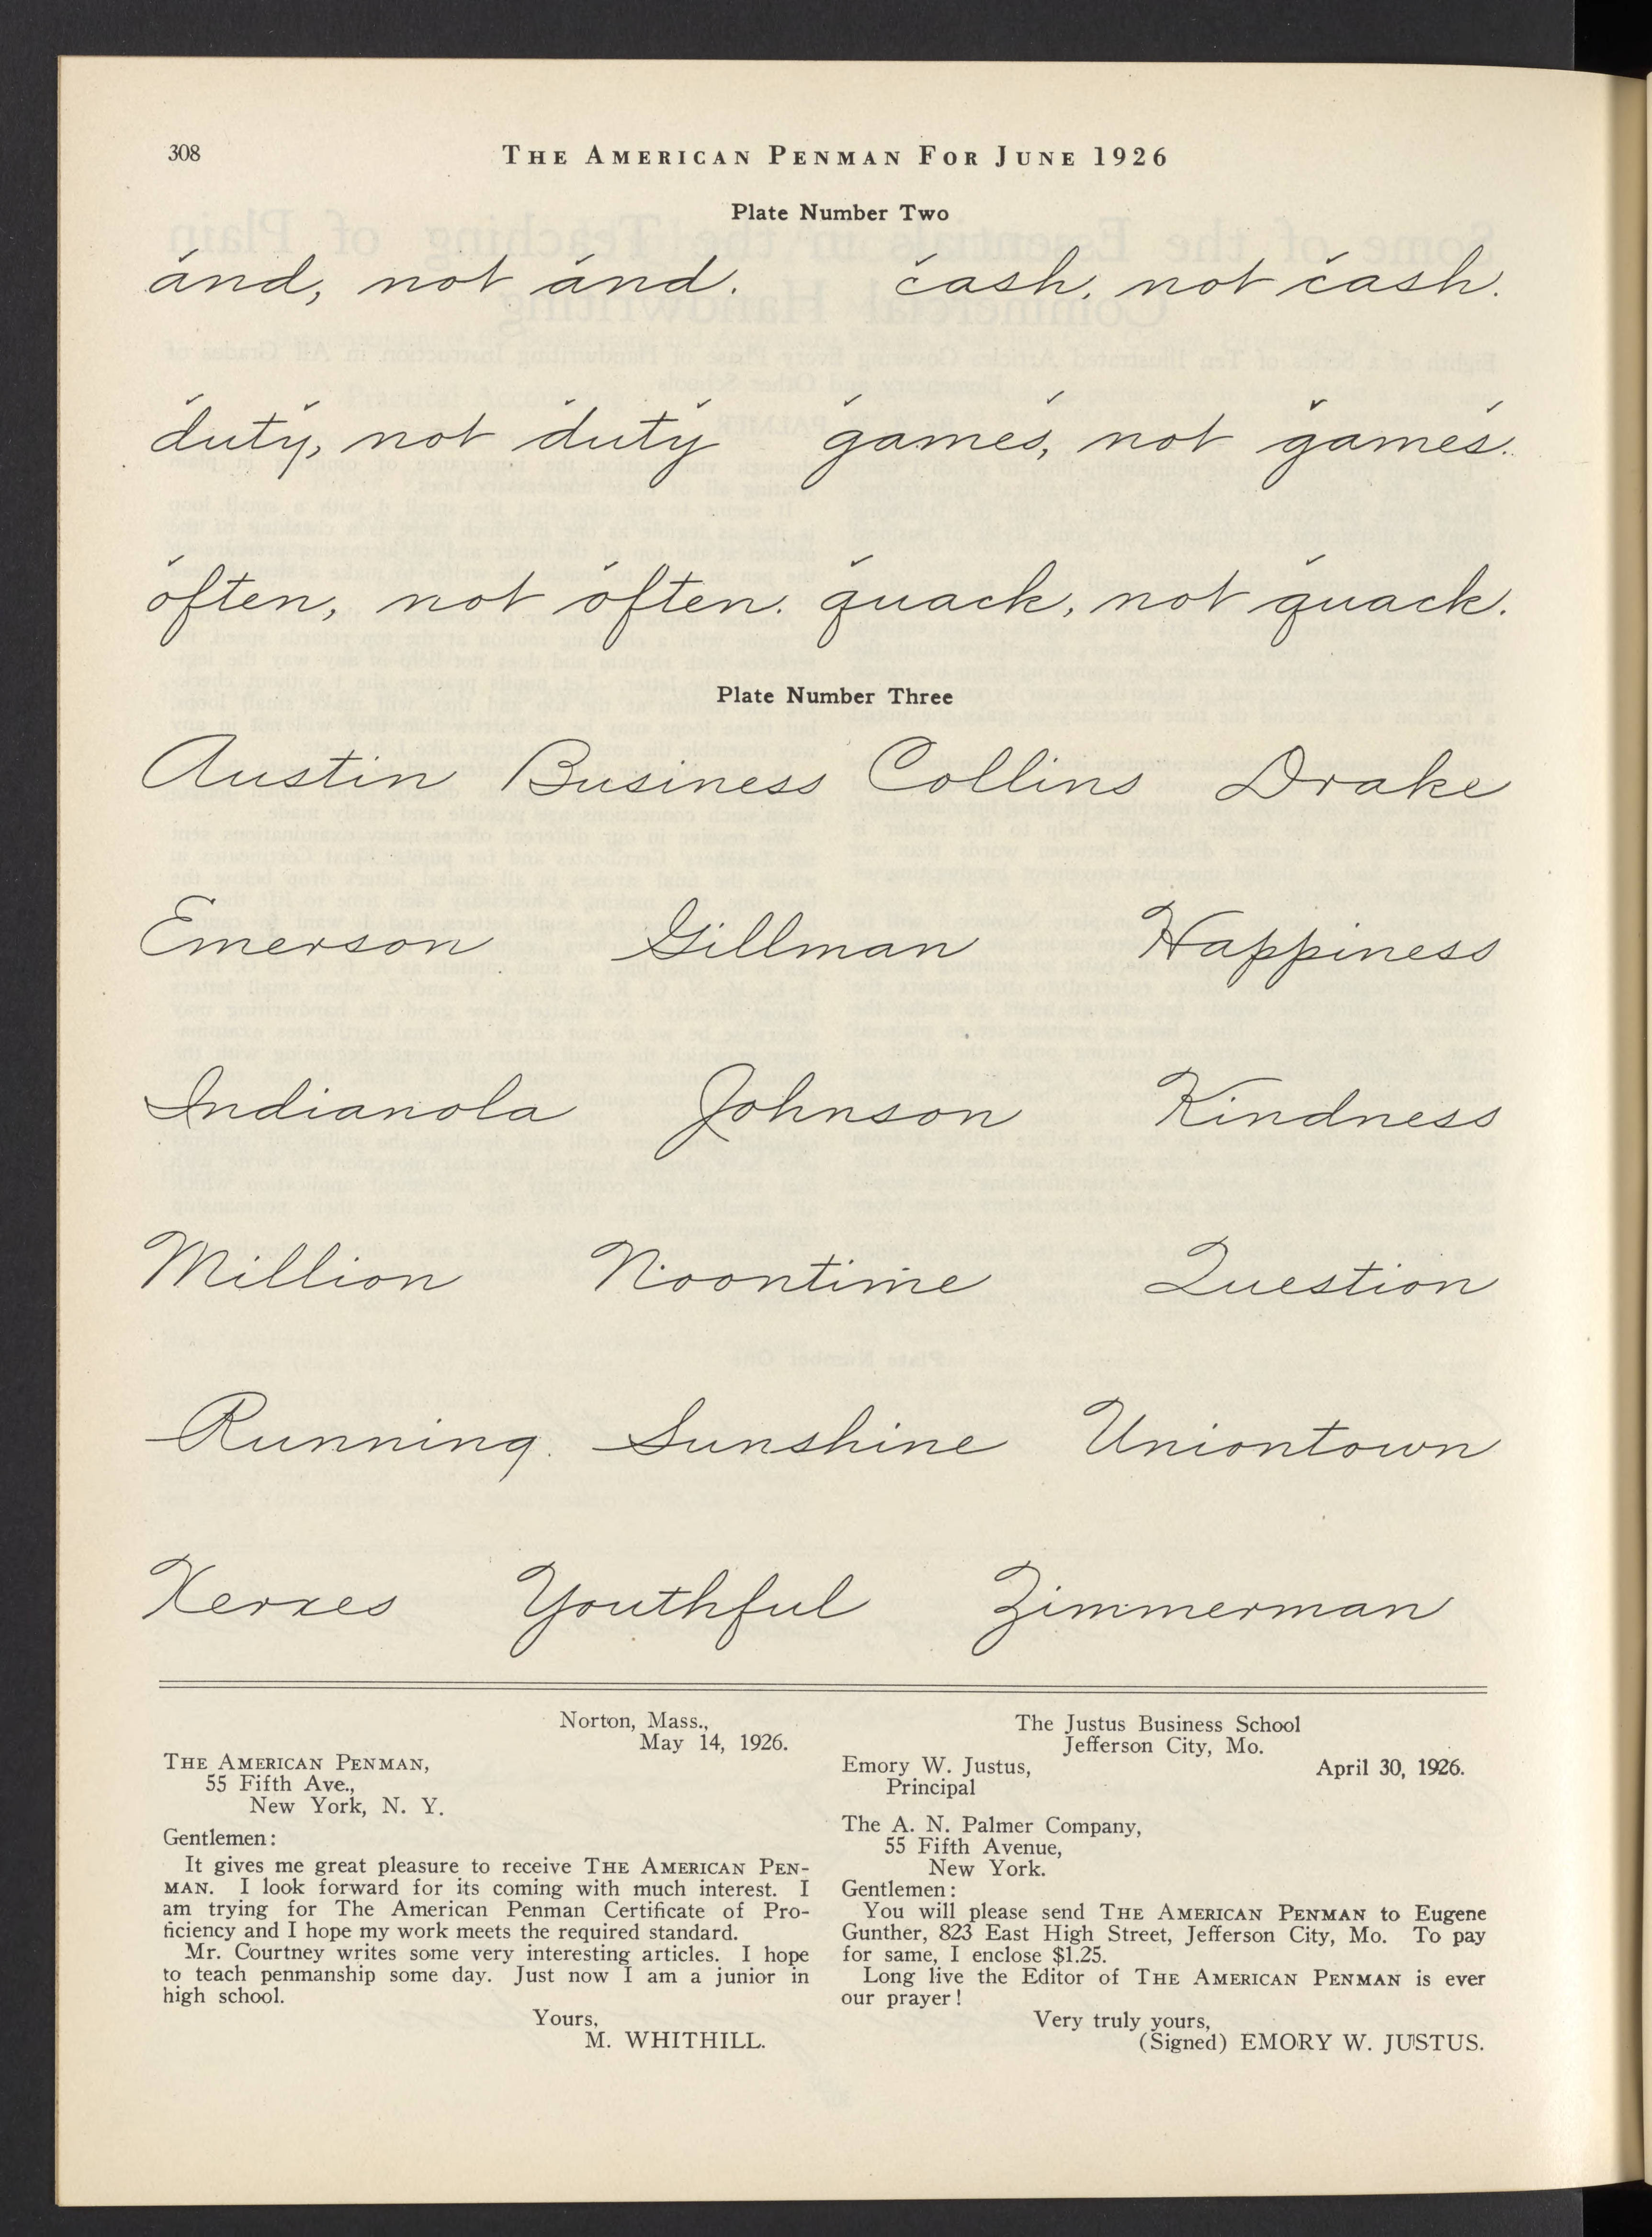 308
THE AMERICAN PENMAN FOR JUNE 1926
Plate Number Two
and, not and. cash, not cash.
duty, not duty games, not games.
often, not often. quack, not quack.
Plate Number Three
Austin Business Collins Drake
Emerson Gillman Happiness
Indianola Johnson Kindness
Million Noontime Question
Running. Sunshine Uniontown
Xerxes Youthful Zimmerman
Norton, Mass.,
May 14, 1926.
THE AMERICAN PENMAN,
55 Fifth Ave.,
New York, N. Y.
Gentlemen:
It gives me great pleasure to receive THE AMERICAN PEN-
MAN. I look forward for its coming with much interest. I
am trying for The American Penman Certificate of Pro-
ficiency and I hope my work meets the required standard.
Mr. Courtney writes some very interesting articles. I hope
to teach penmanship some day. Just now I am a junior in
high school.
Yours,
M. WHITHILL.
The Justus Business School
Jefferson City, Mo.
Emory W. Justus, April 30, 1926.
Principal
The A. N. Palmer Company,
55 Fifth Avenue,
New York.
Gentlemen:
You will please send THE AMERICAN PENMAN to Eugene
Gunther, 823 East High Street, Jefferson City, Mo. To pay
for same, I enclose $1.25.
Long live the Editor of THE AMERICAN PENMAN is ever
our prayer!
Very truly yours,
(Signed) EMORY W. JUSTUS.